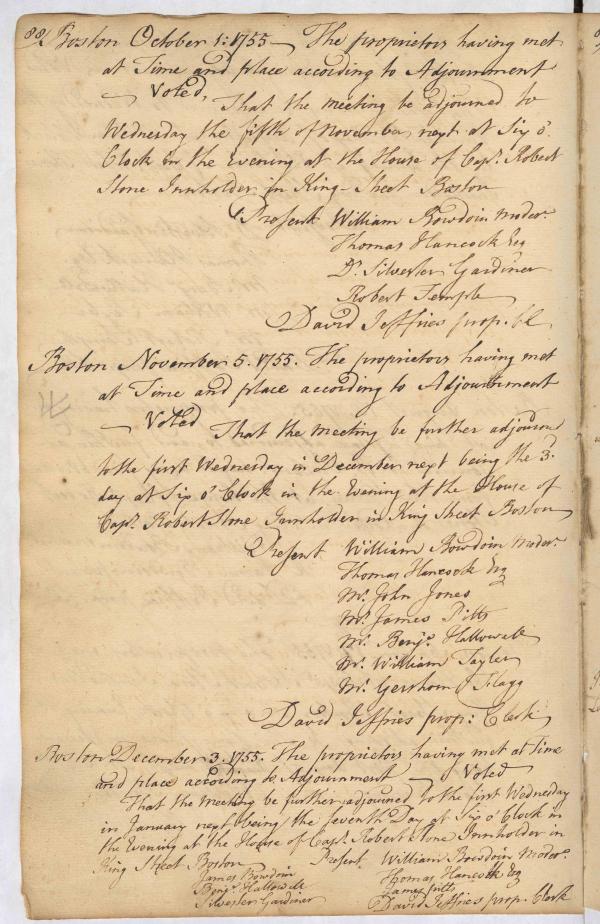 88
Boston October 1: 1755 — The proprietors having met
at Time and place according to Adjournment
— Voted, That the meeting be adjourned to
Wednesday the fifth of November next at Six o'
Clock in the Evening at the House of Capt. Robert
Stone Innholder in King-Street Boston
Present William Bowdoin Moder.
Thomas Hancock Esq
Dr. Silvester Gardiner
Robert Temple
David Jeffries prop. Cl
Boston November 5. 1755. The proprietors having met
at Time and place according to Adjournment
— Voted That the meeting be further adjourn'd
to the first Wednesday in December next being the 3d.
day at Six o' Clock in the Evening at the House of
Capt. Robert Stone Innholder in King Street Boston
Present William Bowdoin Moder.
Thomas Hancock Esq
Mr. John Jones
Mr. James Pitts
Mr. Benja. Hallowell
Mr. William Tayler
Mr. Gershom Flagg
David Jeffries prop: Clerk
Boston December 3. 1755. The proprietors having met at Time
and place according to Adjournment — Voted
That the meeting be further adjourned to the first Wednesday
in January next being the seventh Day at Six o' Clock in
the Evening at the House of Capt. Robert Stone Innholder in
King Street Boston Present William Bowdoin Moder.
James Bowdoin Thomas Hancock Esq
Benja. Hallowell James Pitts
Silvester Gardiner David Jeffries prop. Clerk